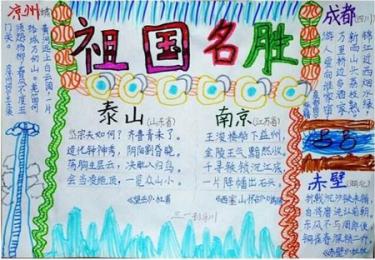 祖国名胜
凉州词
黄河远上白云间,一片
孤城万仞山。羌笛何
须怨杨柳,春风不度玉
门关。
泰山(山东省)
岱宗夫如何?齐鲁青未了。
造化钟神秀,阴阳割昏晓。
荡胸生层云,决眦入归鸟。
会当凌绝顶,一览众山小。
《望岳》杜甫
南京(江苏省)
王浚楼船下益州,
金陵王气黯然收。
千寻铁锁沉江底,
一片降幡出石头。
《西塞山怀古》
成都(四川)
锦江近西烟水绿,
新雨山头荔枝熟。
万里桥边多酒家,
游人爱向谁家宿
赤壁(湖北)
折戟沉沙铁未销
自将磨洗认前朝
东风不与周郎便
铜雀春深锁二乔
《赤壁》杜牧